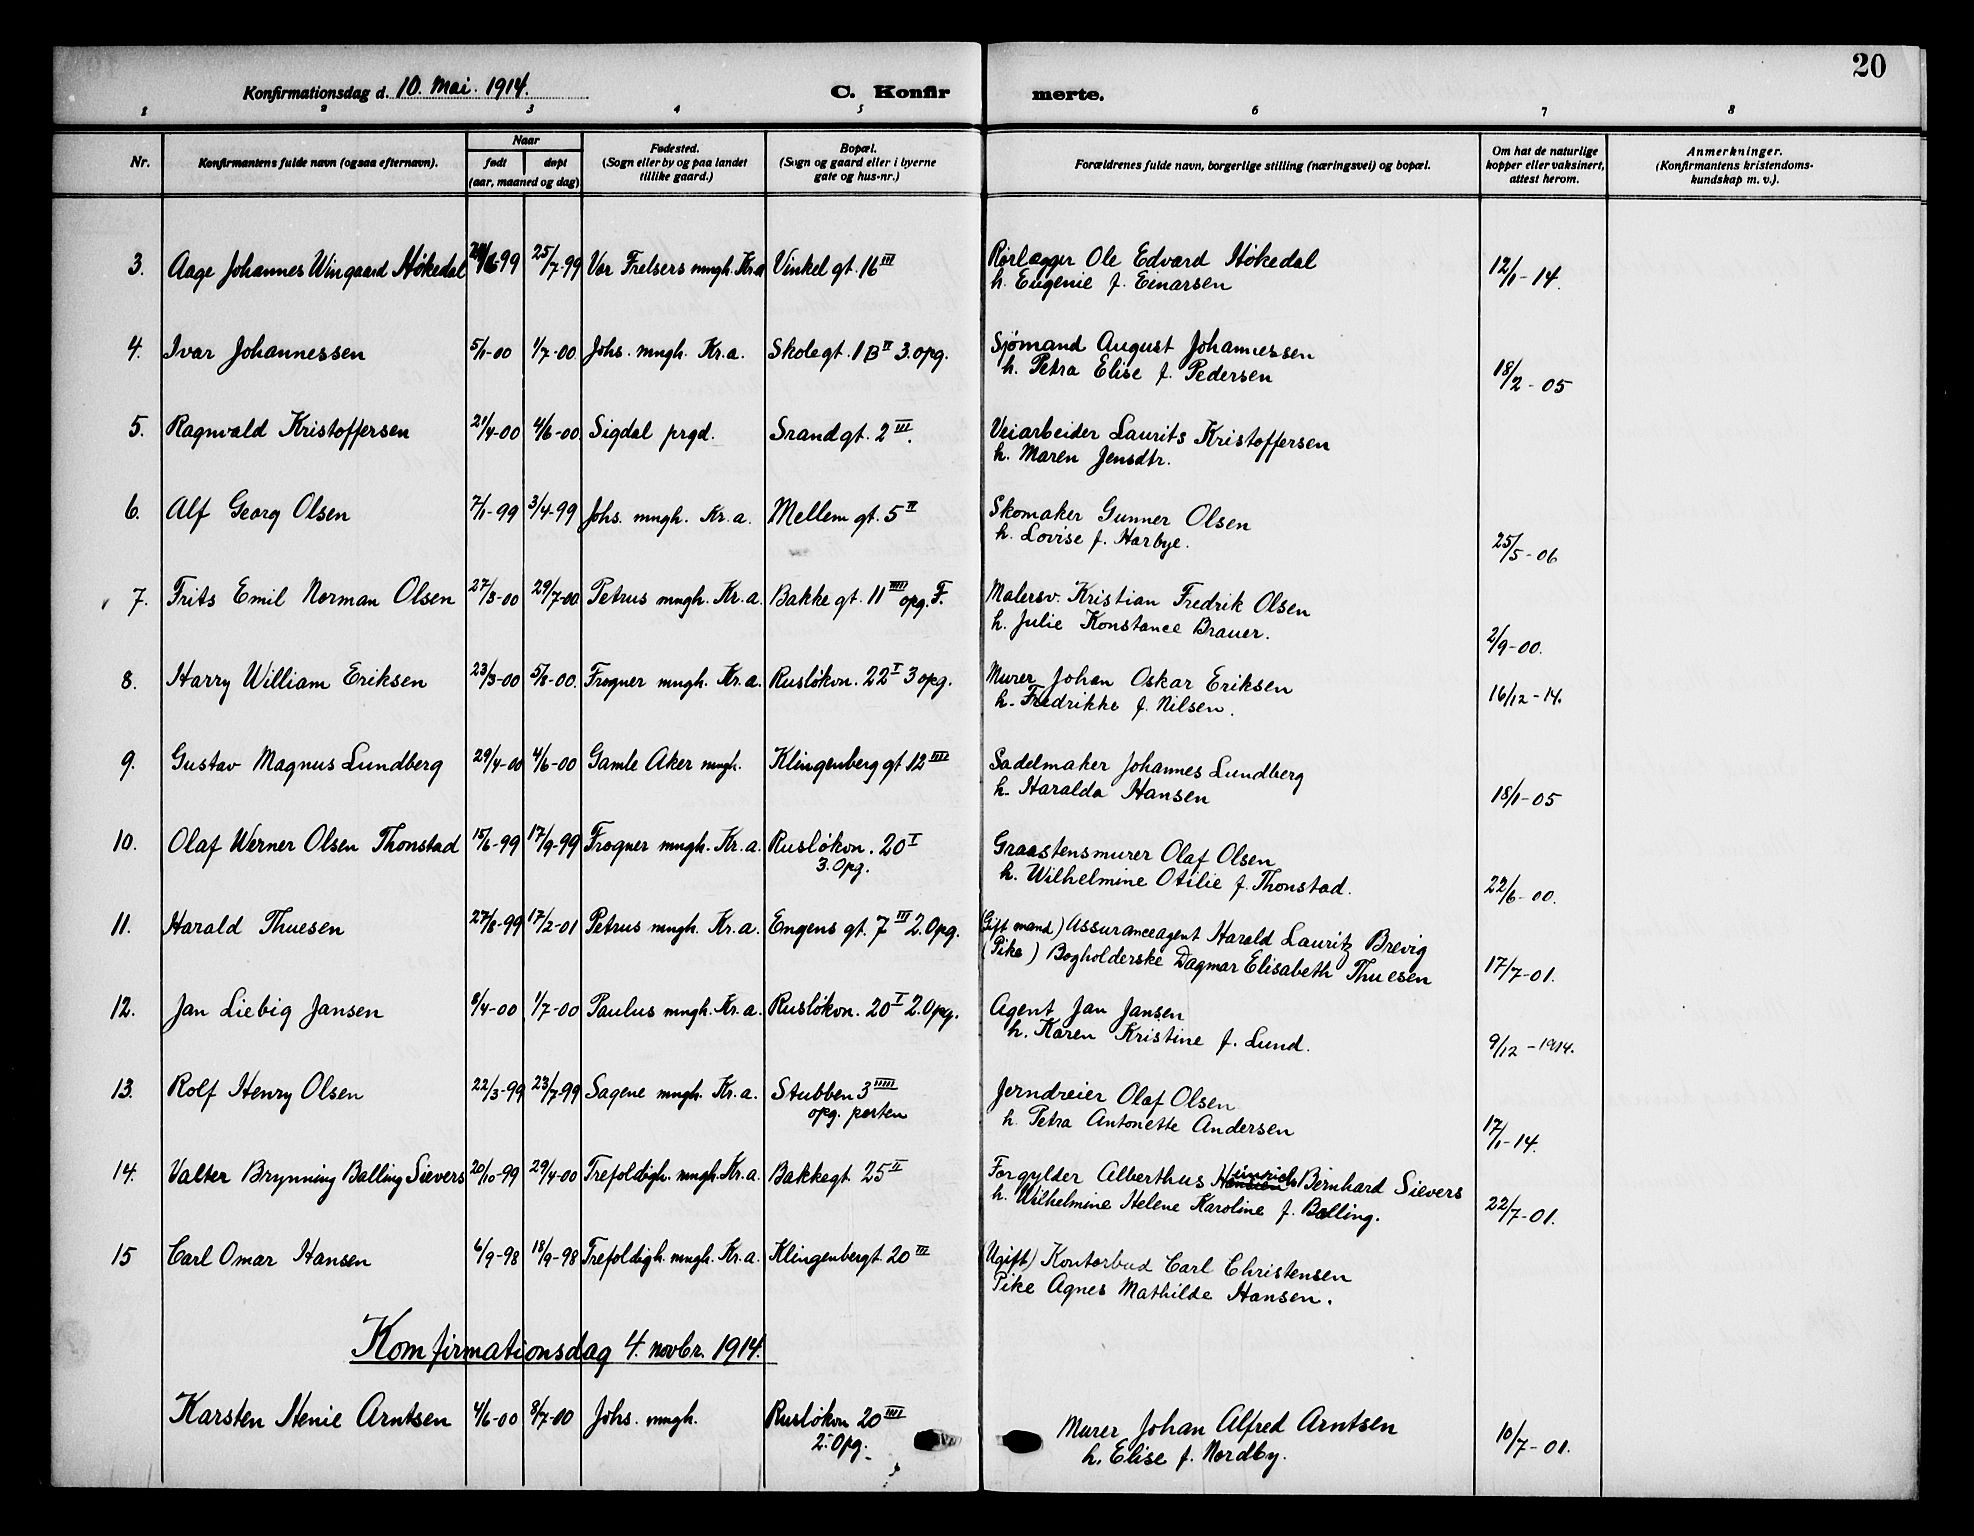 20
Konfirmationsdag d. 10. Mai. 1914. C. Konfir merte.
1 2 3 4 5 6 7 8
Nr. Konfirmantens fulde navn (ogsaa efternavn). Naar født døpt (aar, maaned og dag) Fødested. (Sogn eller by og paa landet tillike gaard.) Bopæl. (Sogn og gaard eller i byerne gate og hus-nr.) Forældrenes fulde navn, borgerlige stilling (næringsvei) og bopæl. Om hat de naturlige kopper eller vaksinert, attest herom. Anmerkninger. (Konfirmantens kristendomskundskap m. v.).
3. Aage Johannes Wingaard Høkedal /6-99 25/7-99 Vor Frelsers mngh. Kr.a Vinkel gt. 16 III Rørlægger Ole Edvard Høkedal 12/1-14.
h. Eugenie f. Einarsen
4. Ivar Johannessen 5/1-00 1/7-00 Johs. mngh. Kr.a. Skolegt. 1 B II 3.opg. Sjømand August Johannessen
h. Petra Elise f. Pedersen 18/2-05
5. Ragnvald Kristoffersen 21/4-00 4/6-00 Sigdal prgd. Srandgt. 2 III. Veiarbeider Laurits Kristoffersen
h. Maren Jensdtr.
6. Alf Georg Olsen 7/1-99 3/4-99 Johs. mngh. Kr.a. Mellem gt. 5 II Skomaker Gunner Olsen
h. Lovise f. Harbye. 25/5-06
7. Frits Emil Norman Olsen 27/3-00 29/7-00 Petrus mngh. Kr.a. Bakke gt. 11 IIII opg. F. Malersv. Kristian Fredrik Olsen
h. Julie Konstance Brauer. 2/9-00.
8. Harry William Eriksen 23/3-00 5/8-00. Frogner mngh. Kr.a. Rusløkvn. 22 I 3 opg. Murer Johan Oskar Eriksen 16/12-14.
h. Fredrikke f. Nilsen.
9. Gustav Magnus Lundberg 29/4-00 4/6-00 Gamle Aker mngh. Klingenberg gt 12 IIII Sadelmaker Johannes Lundberg
h. Haralda Hansen 18/1-05
10. Olaf Werner Olsen Thonstad 15/6-99 17/9-99 Frogner mngh. Kr.a. Rusløkvn. 20 I Graastensmurer Olaf Olsen
3. Opg. h. Wilhelmine Otilie f. Thonstad. 22/6-00.
11. Harald Thuesen 27/8-99 17/2-01 Petrus mngh. Kr.a. Engens gt. 7 III 2.Opg. (Gift mand) Assuranceagent Harald Lauritz Brevig
(Pike) Bogholderske Dagmar Elisabeth Thuesen 17/7-01.
12. Jan Liebig Jansen 8/4-00 1/7-00 Paulus mngh. Kr.a. Rusløkvn. 20 I 2.Opg. Agent Jan Jansen
h. Karen Kristine f. Lund. 9/12-1914.
13. Rolf Henry Olsen 22/3-99 23/7-99 Sagene mngh. Kr.a. Stubben 3 IIIII Jerndreier Olaf Olsen
opg. porten h. Petra Antonette Andersen 17/1-14.
14. Valter Brynning Balling Sievers 20/10-99 29/4-00 Trefoldigh. mngh. Kr.a. Bakkegt 25 II Forgylder Alberthus Heinrich Bernhard Sievers
h. Wilhelmine Helene Karoline f. Balling. 22/7-01.
15 Carl Omar Hansen 6/9-98 18/9-98 Trefoldigh. mngh. Kr.a. Klingenbergt 20 III (Ugift) Kontorbud Carl Christensen
Pike Agnes Mathilde Hansen.
Komfirmationsdag 4. novbr. 1914.
Karsten Henie Arntsen 4/6-00 8/7-00 Johs. mngh. Rusløkvn 20 IIII Murer Johan Alfred Arntsen
2. Opg. h. Elise f. Nordby. 10/7-01.